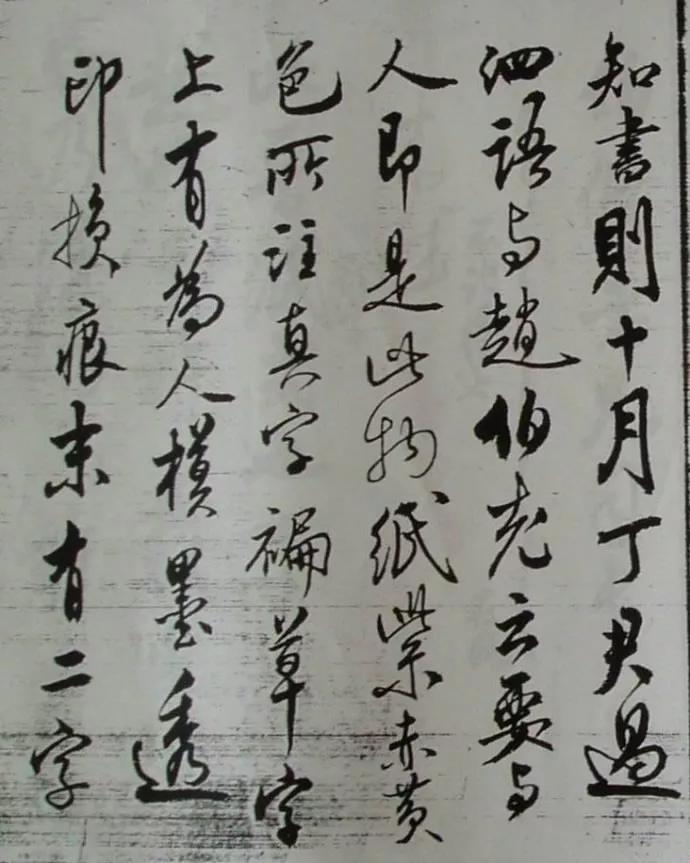 知書則十月丁君過
泗語与趙伯充云要与
人即是此物紙紫赤黄
色所注真字褊草字
上有為人模墨透
印損痕末有二字